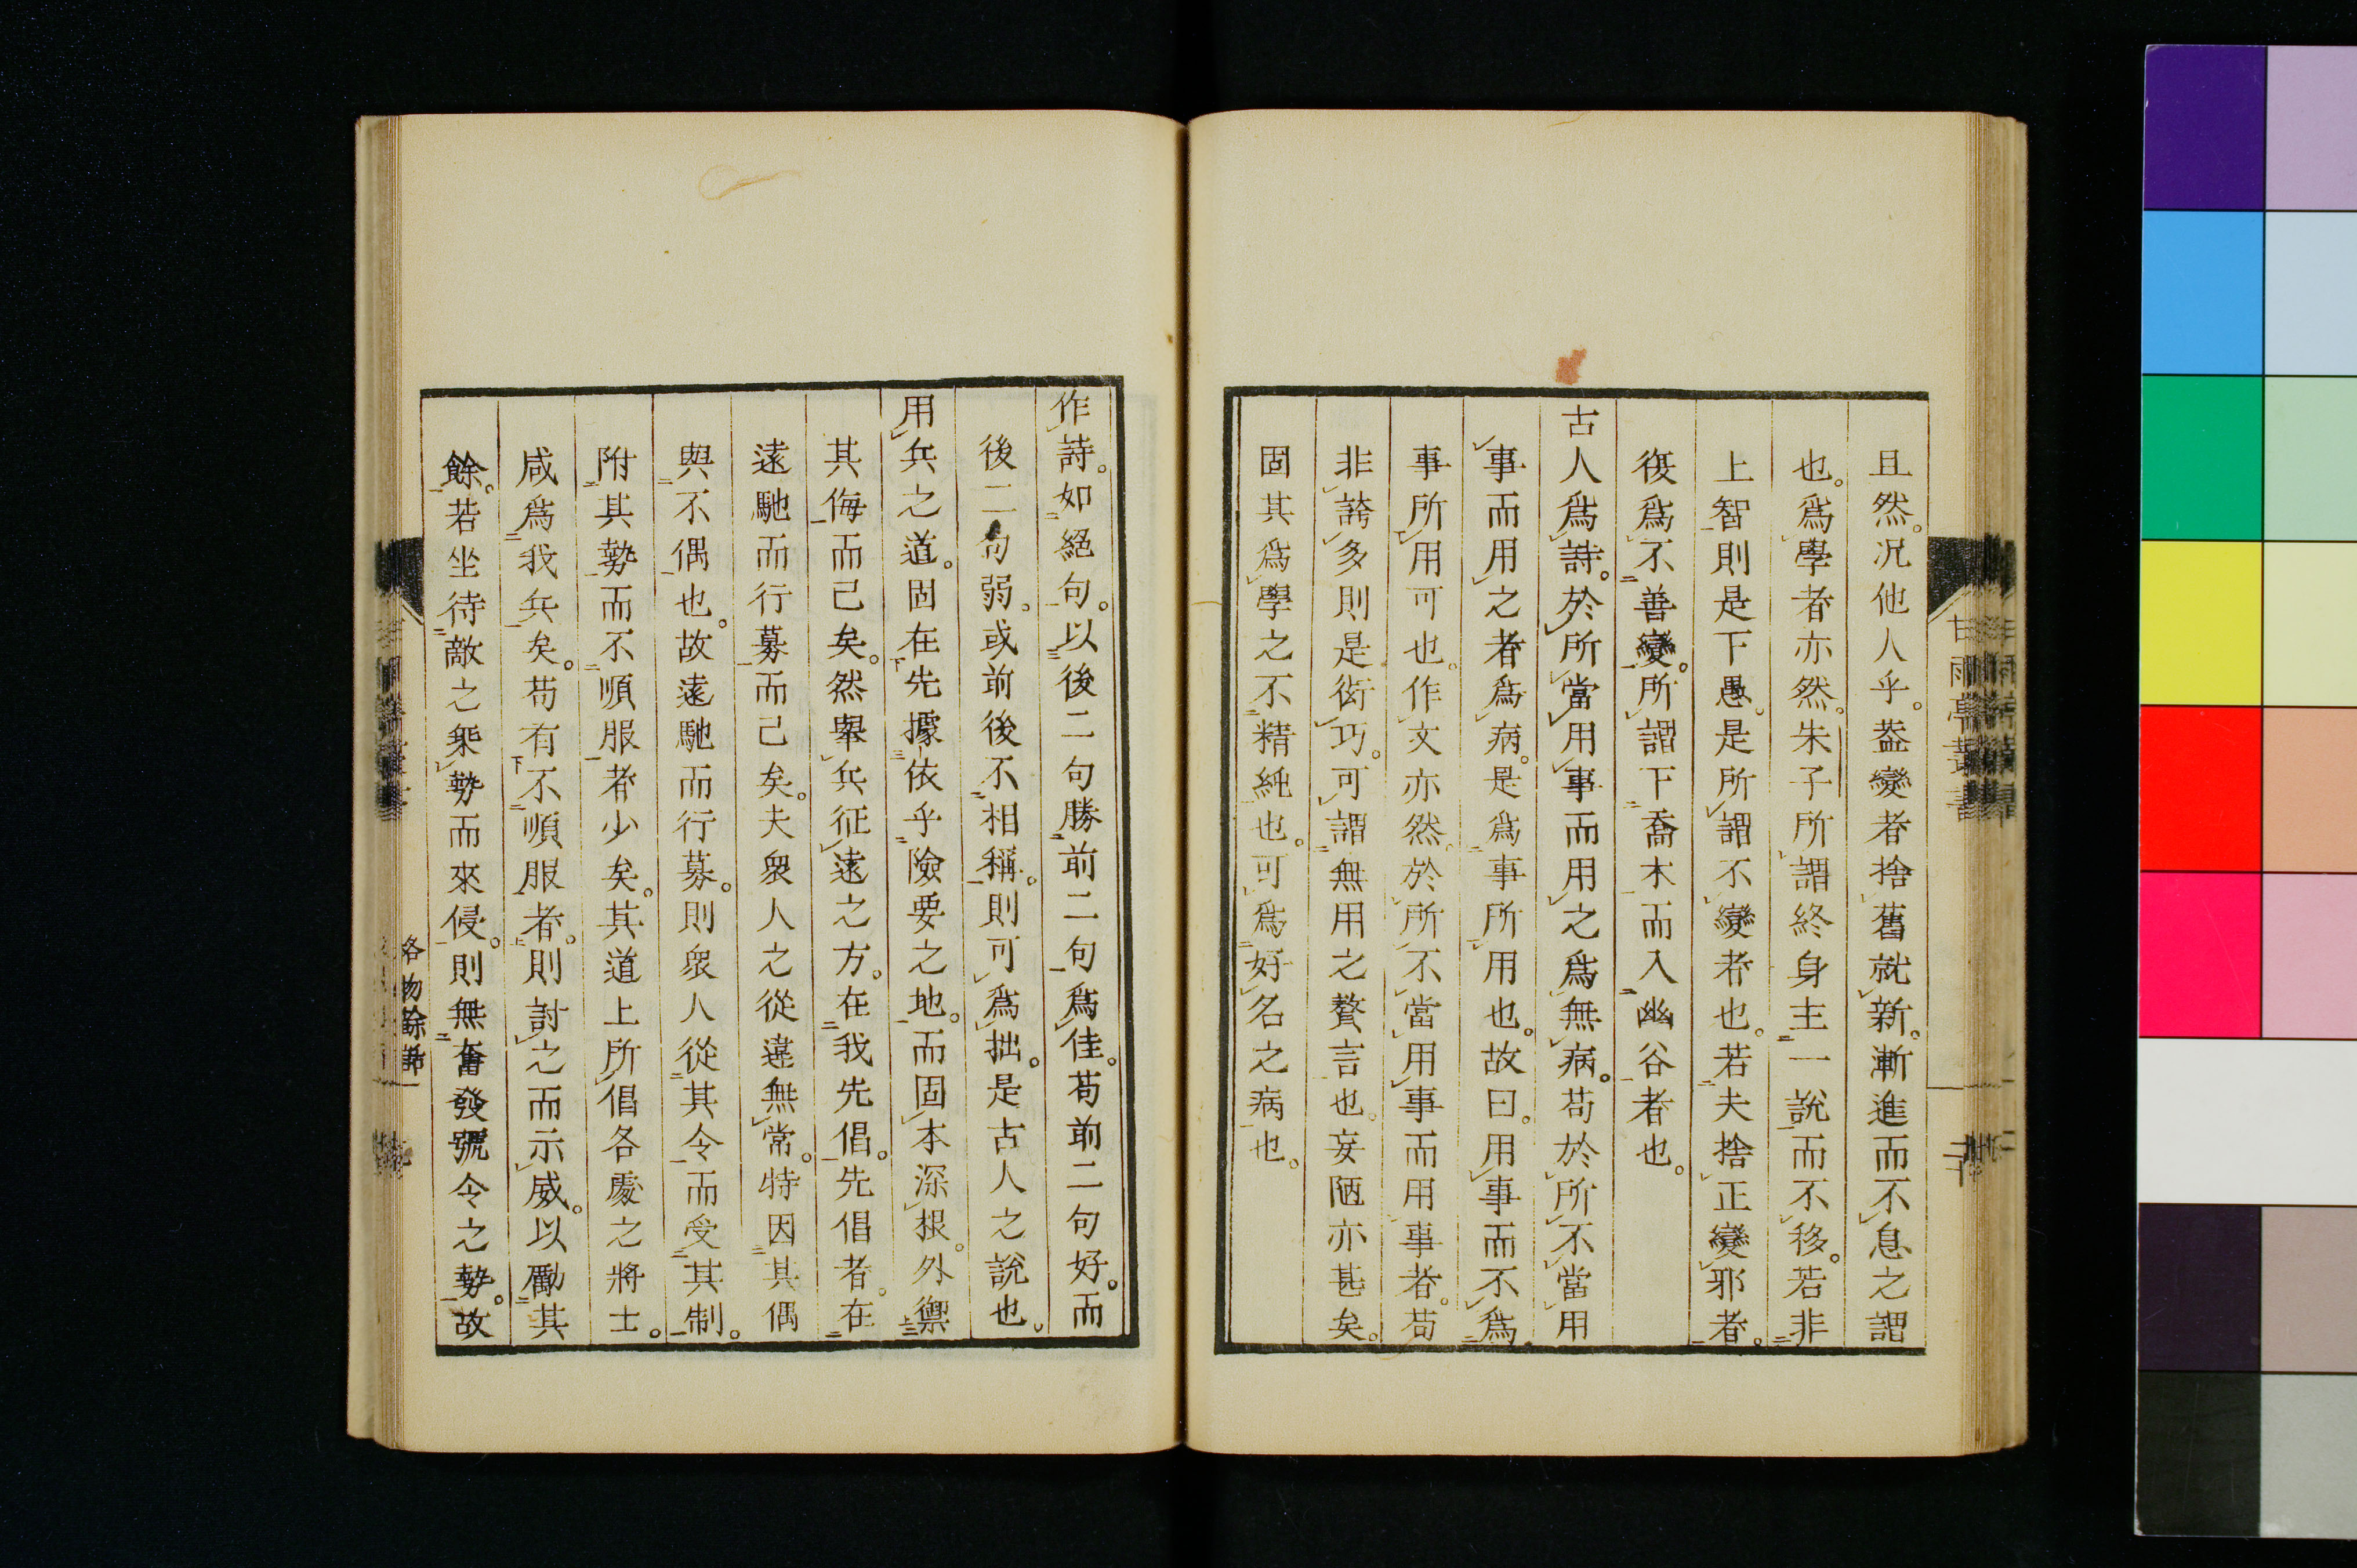 且然。況他人乎。蓋變者捨舊就新。漸進而不息之謂
也。爲學者亦然。朱子所謂終身主一說而不移。若非
上智則是下愚。是所謂不變者也。若夫捨正變邪者。
復爲不善變。所謂下喬木而入幽谷者也。
古人爲詩。於所當用事而用之爲無病。苟於所不當用
事而用之者爲病。是爲事所用也。故曰。用事而不爲。
事所用可也。作文亦然。於所不當用事而用事者。苟
非誇多則是衒巧。可謂無用之贅言也。妄陋亦甚矣。
固其爲學之不精純也。可爲好名之病也。
甘雨亭叢書
作詩。如絕句。以後二句勝前二句爲佳。苟前二句好。而
後二句弱。或前後不相稱。則可爲拙。是古人之說也。
用兵之道。固在先據依乎險要之地。而固本深根。外禦
其侮而己矣。然擧兵征遠之方。在我先倡。先倡者。在
遠馳而行募而己矣。夫衆人之從違無常。特因其偶
與不偶也。故遠馳而行募。則衆人從其令而受其制。
附其勢而不順服者少矣。其道上所倡各處之將士。
咸爲我兵矣。苟有不順服者。則討之而示威。以勵其
餘。若坐待敵之乘勢而來侵。則無奮發號令之勢。故
格物餘話